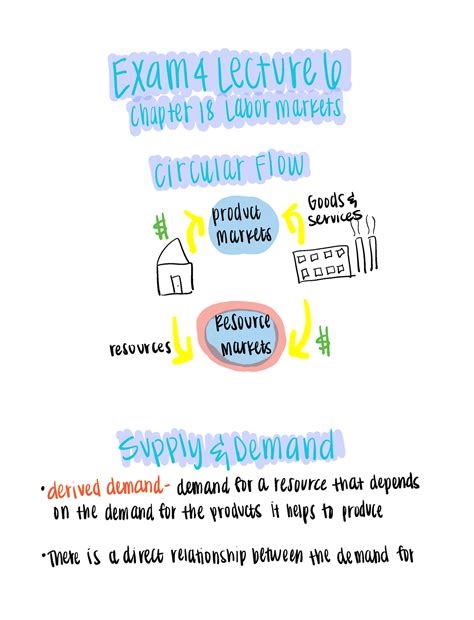 Exam 4 Lecture 6
Chapter 18 Labor markets
Circular Flow
$
product
markets
Goods &
services
resources
Resource
markets
$
Supply & Demand
• derived demand- demand for a resource that depends
on the demand for the products it helps to produce
• There is a direct relationship between the demand for